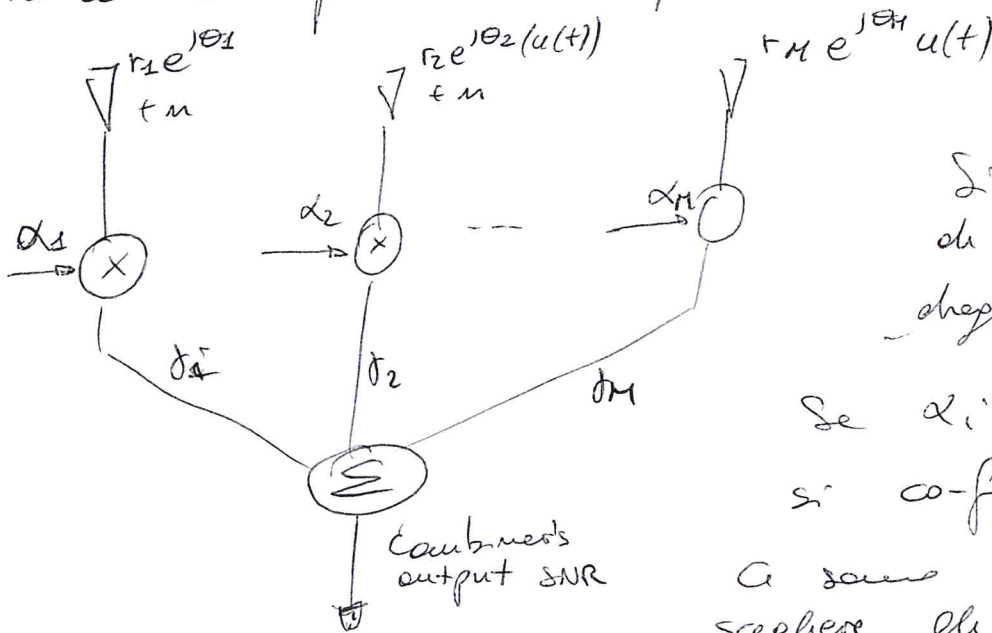 r1 e^jθ1
+ n
r2 e^jθ2 (u(t))
+ n
rM e^jθM u(t)
α1
x
α2
x
---
αM
γ1
γ2
γM
Σ
Combiner's
output SNR
di
Se αi
si co-f
scegliere